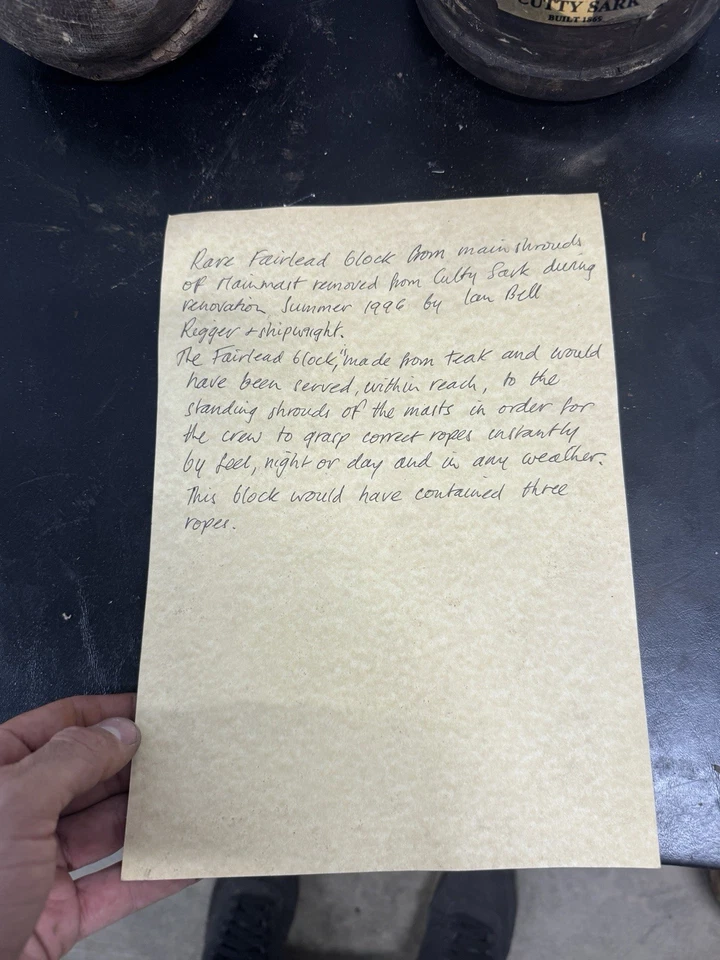 CUTTY SARK
BUILT 1869
Rare Fairlead block from main shrouds
of Mainmast removed from Cutty Sark during
renovation, Summer 1996 by Ian Bell
Rigger + shipwright.
The Fairlead block," made from teak and would
have been served, within reach, to the
standing shrouds of the masts in order for
the crew to grasp correct ropes instantly
by feel, night or day and in any weather.
This block would have contained three
ropes.